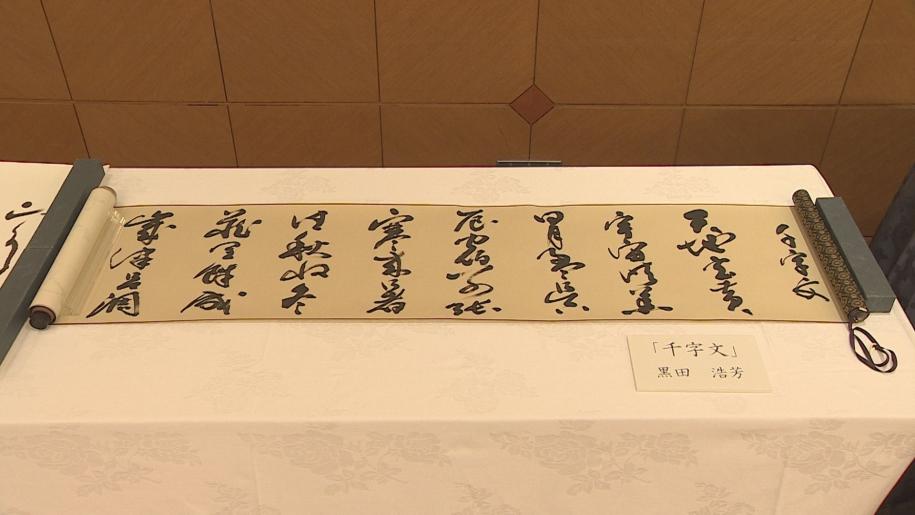 千字文
天地玄黄
宇宙洪荒
日月盈昃
辰宿列張
寒来暑
往秋収冬
蔵閏餘成
歳律呂調
「千字文」
黒田 浩芳